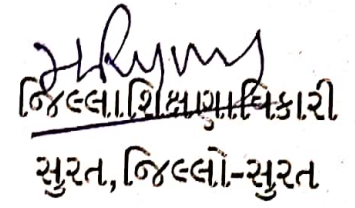 જિલ્લા શિક્ષાણાધિકારી
સુરત, જિલ્લો-સુરત